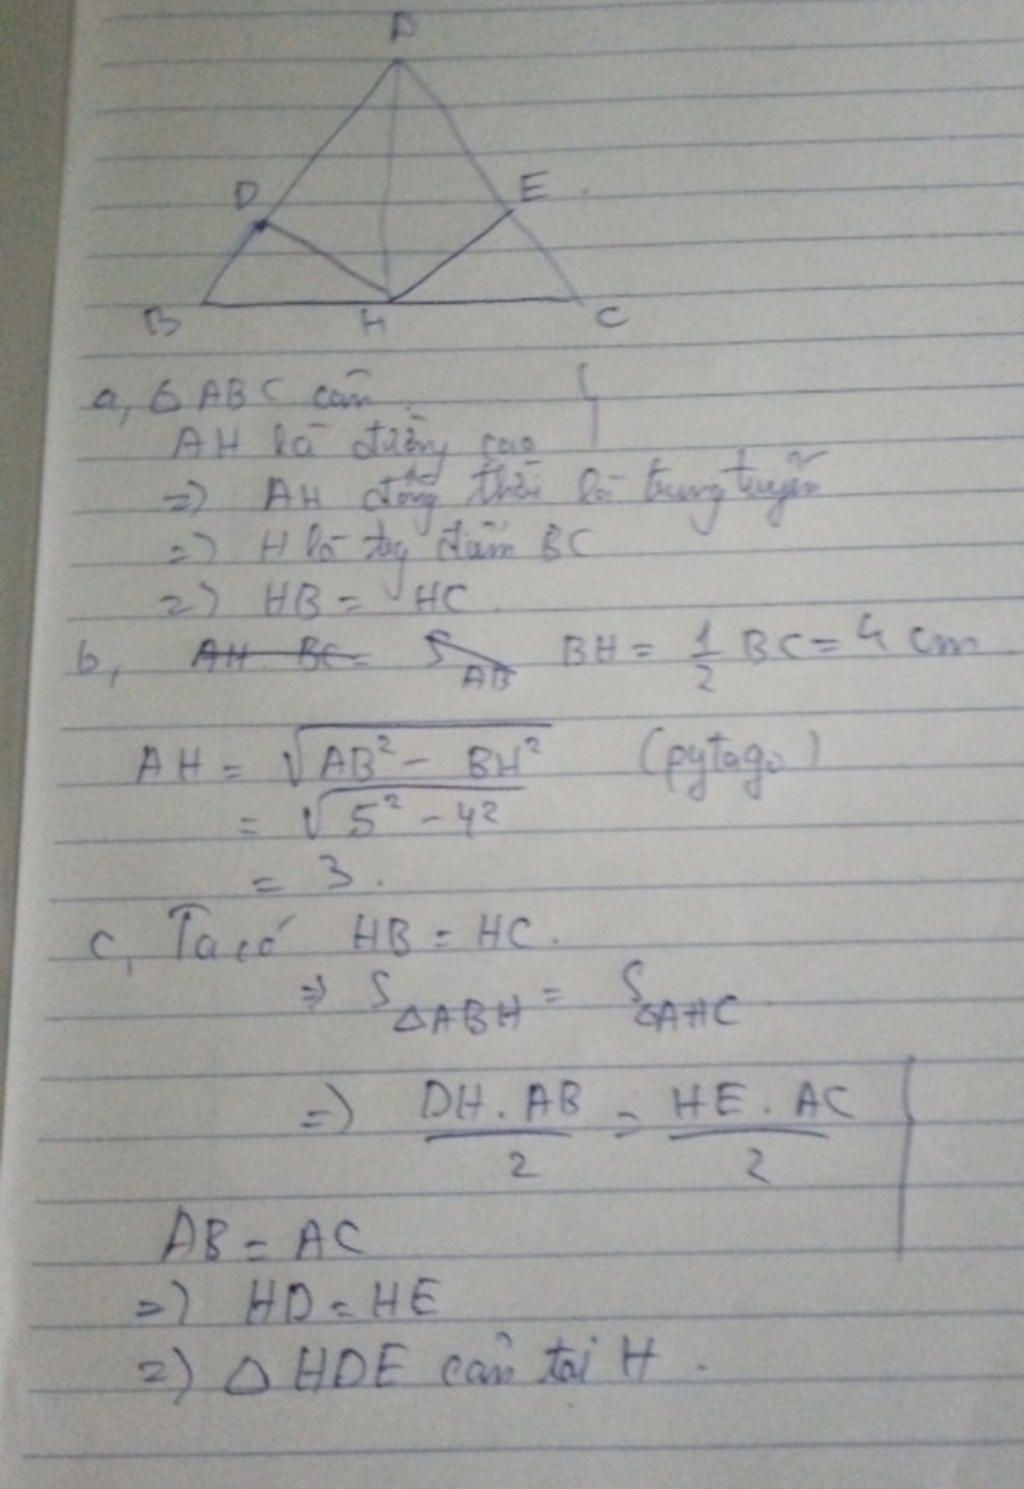 A
D
E
B
H
C
a, Δ ABC cân
AH là đường cao
=> AH đồng thời là trung tuyến
=> H là tg điểm BC
=> HB = HC
b, AH BC = S AB BH = 1/2 BC = 4 cm
AH = √(AB² - BH²) (pytago)
= √(5² - 4²)
= 3.
c, Ta có HB = HC.
=> S ΔABH = S ΔAHC
=> DH . AB / 2 = HE . AC / 2
AB = AC
=> HD = HE
=> Δ HDE cân tại H.